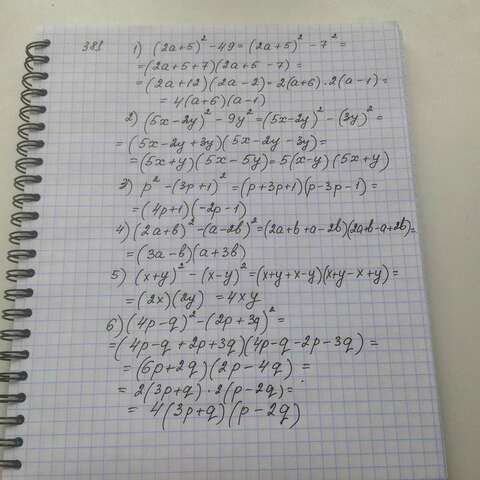 388
1) (2a+5)² - 49 = (2a+5)² - 7² =
= (2a+5+7)(2a+5-7) =
= (2a+12)(2a-2) = 2(a+6)·2(a-1) =
= 4(a+6)(a-1)
2) (5x-2y)² - 9y² = (5x-2y)² - (3y)² =
= (5x-2y+3y)(5x-2y-3y) =
= (5x+y)(5x-5y) = 5(x-y)(5x+y)
3) p² - (3p+1)² = (p+3p+1)(p-3p-1) =
= (4p+1)(-2p-1)
4) (2a+b)² - (a-2b)² = (2a+b+a-2b)(2a+b-a+2b) =
= (3a-b)(a+3b)
5) (x+y)² - (x-y)² = (x+y+x-y)(x+y-x+y) =
= (2x)(2y) = 4xy
6) (4p-q)² - (2p+3q)² =
= (4p-q+2p+3q)(4p-q-2p-3q) =
= (6p+2q)(2p-4q) =
= 2(3p+q)·2(p-2q) =
= 4(3p+q)(p-2q)